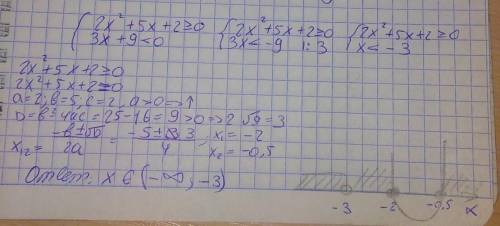 {2x²+5x+2≥0 {2x²+5x+2≥0 {2x²+5x+2≥0
{3x+9<0 {3x<-9 |:3 {x<-3
2x²+5x+2≥0
2x²+5x+2=0
a=2; b=5, c=2, a>0=>↑
D=b²-4ac=25-16=9>0=>2 √9=3
x₁,₂= -b±√D / 2a = -5±3 / 4 x₁=-2
x₂=-0,5
Ответ. x∈(-∞; -3)
-3 -2 -0,5 x